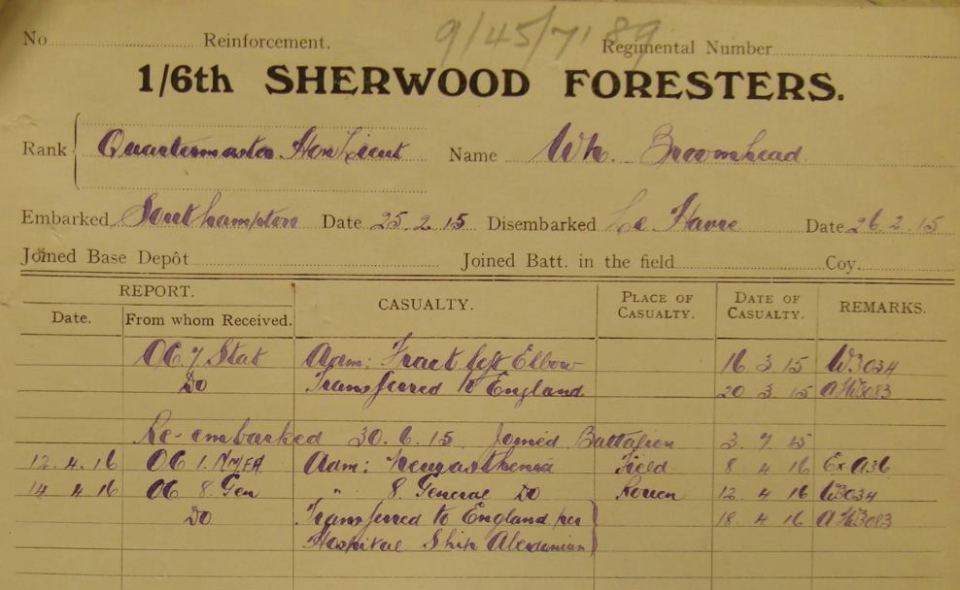 No Reinforcement. 9/45/7'89 Regimental Number
1/6th SHERWOOD FORESTERS.
Rank Quartermaster Hon Lieut Name Wm. Broomhead
Embarked Southampton Date 25.2.15 Disembarked Le Havre Date 26.2.15
Joined Base Depôt Joined Batt. in the field Coy.
REPORT. CASUALTY. PLACE OF CASUALTY. DATE OF CASUALTY. REMARKS.
Date. From whom Received.
OC 7 Stat Adm: Fract left Elbow 16 3 15 W3034
Do Transferred to England 20 3 15 A W3083
Re-embarked 30.6.15 Joined Battalion 3. 7 15
12.4.16 OC 1. NMFA Adm: Neurasthenia Field 8 4 16 Ex A36
14 4 16 OC 8. Gen " 8. General Do Rouen 12. 4 16 W3034
Do Transferred to England per 18. 4 16 A W3083
Hospital Ship